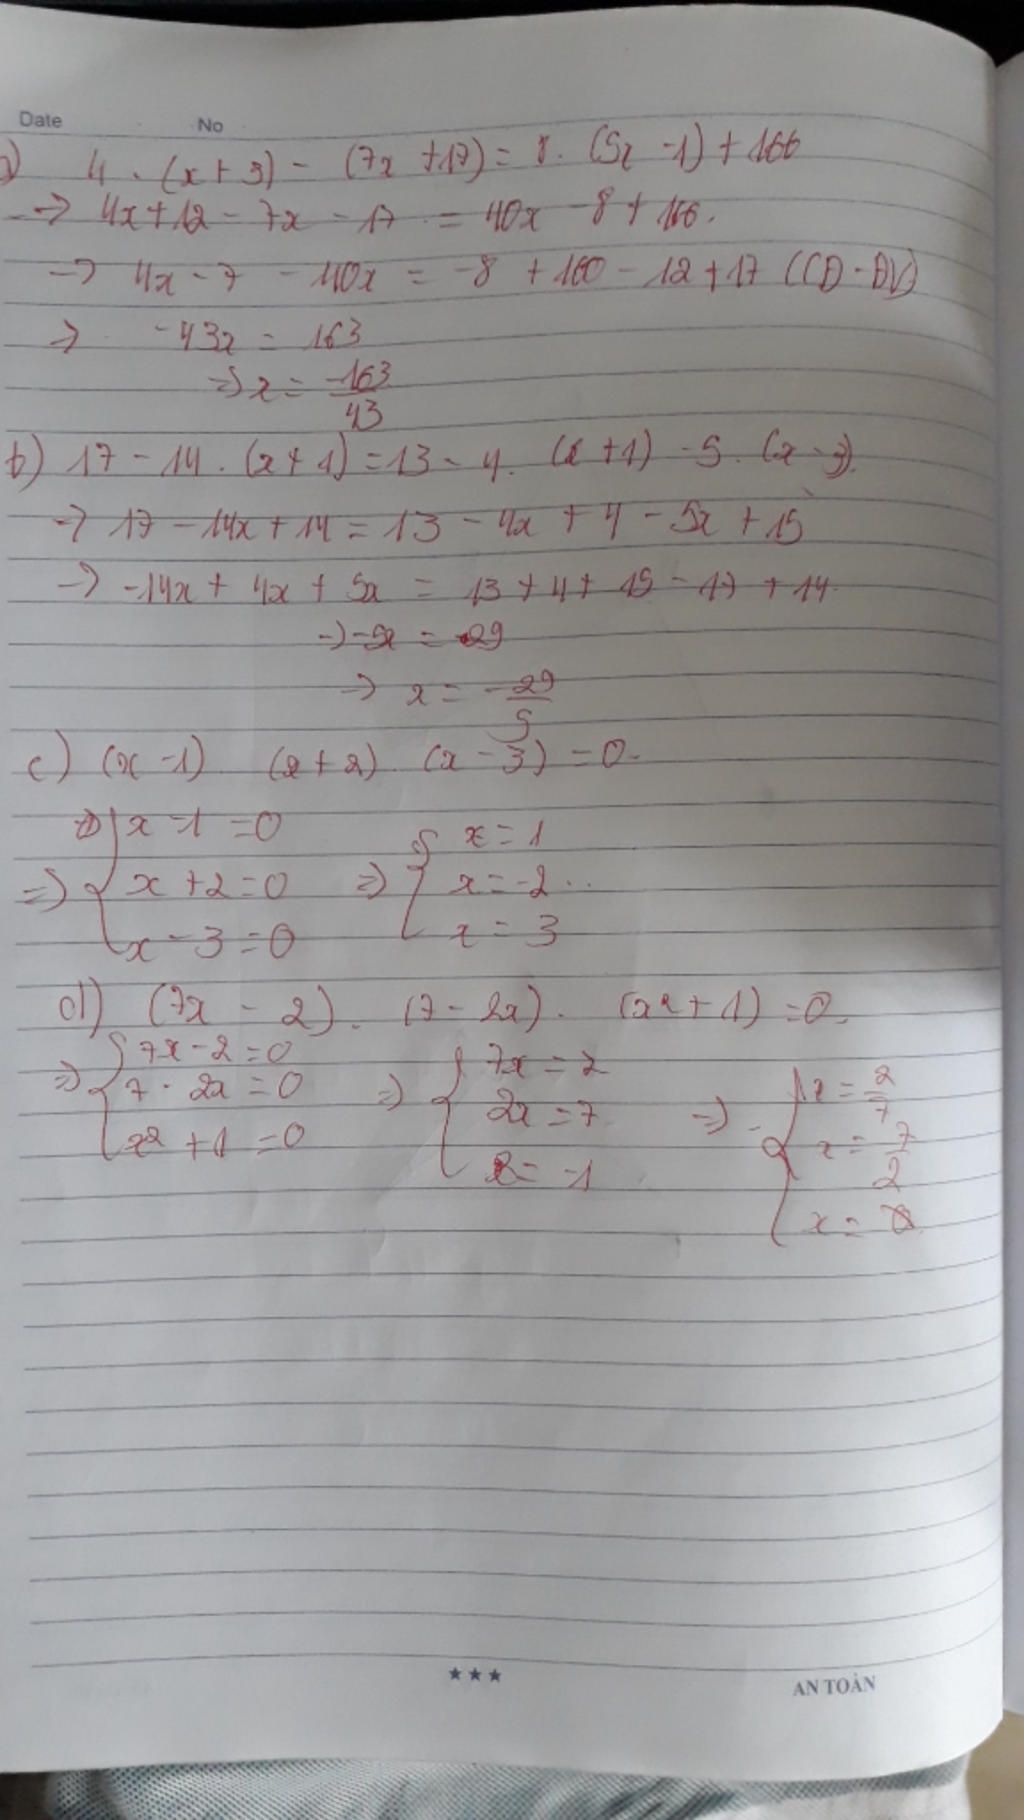 Date No
a) 4 . (x + 3) - (7x + 17) = 8 . (5x - 1) + 166
-> 4x + 12 - 7x - 17 = 40x - 8 + 166.
-> 4x - 7 - 40x = -8 + 160 - 12 + 17 (CD - ĐV)
-> -43x = 163
=> x = -163/43
b) 17 - 14 . (x + 1) = 13 - 4 . (x + 1) - 5 . (x - 3)
-> 17 - 14x + 14 = 13 - 4x + 4 - 5x + 15
-> -14x + 4x + 5x = 13 + 4 + 15 - 17 + 14
-> -5x = 29
-> x = -29/5
c) (x - 1) (x + 2) (x - 3) = 0
x - 1 = 0 x = 1
=> x + 2 = 0 => x = -2
x - 3 = 0 x = 3
d) (7x - 2) . (7 - 2x) . (x² + 1) = 0
7x - 2 = 0 7x = 2 x = 2/7
=> 7 - 2x = 0 => 2x = 7 => x = 7/2
x² + 1 = 0 x = -1 x =
★★★ AN TOÀN